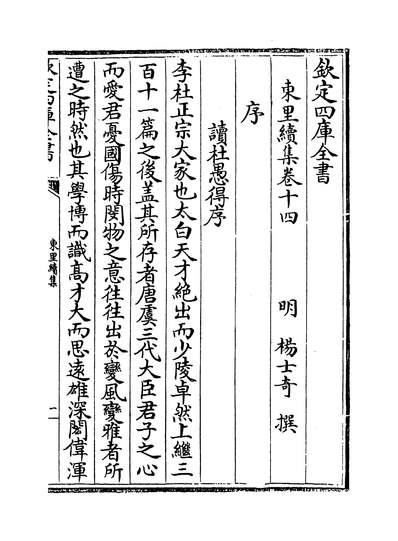 欽定四庫全書
東里續集卷十四
明 楊士奇 撰
序
讀杜愚得序
李杜正宗大家也太白天才絶出而少陵卓然上繼三
百十一篇之後盖其所存者唐虞三代大臣君子之心
而愛君憂國傷時閔物之意往往出於變風變雅者所
遭之時然也其學博而識髙才大而思遠雄深閎偉渾
欽定四庫全書
東里續集